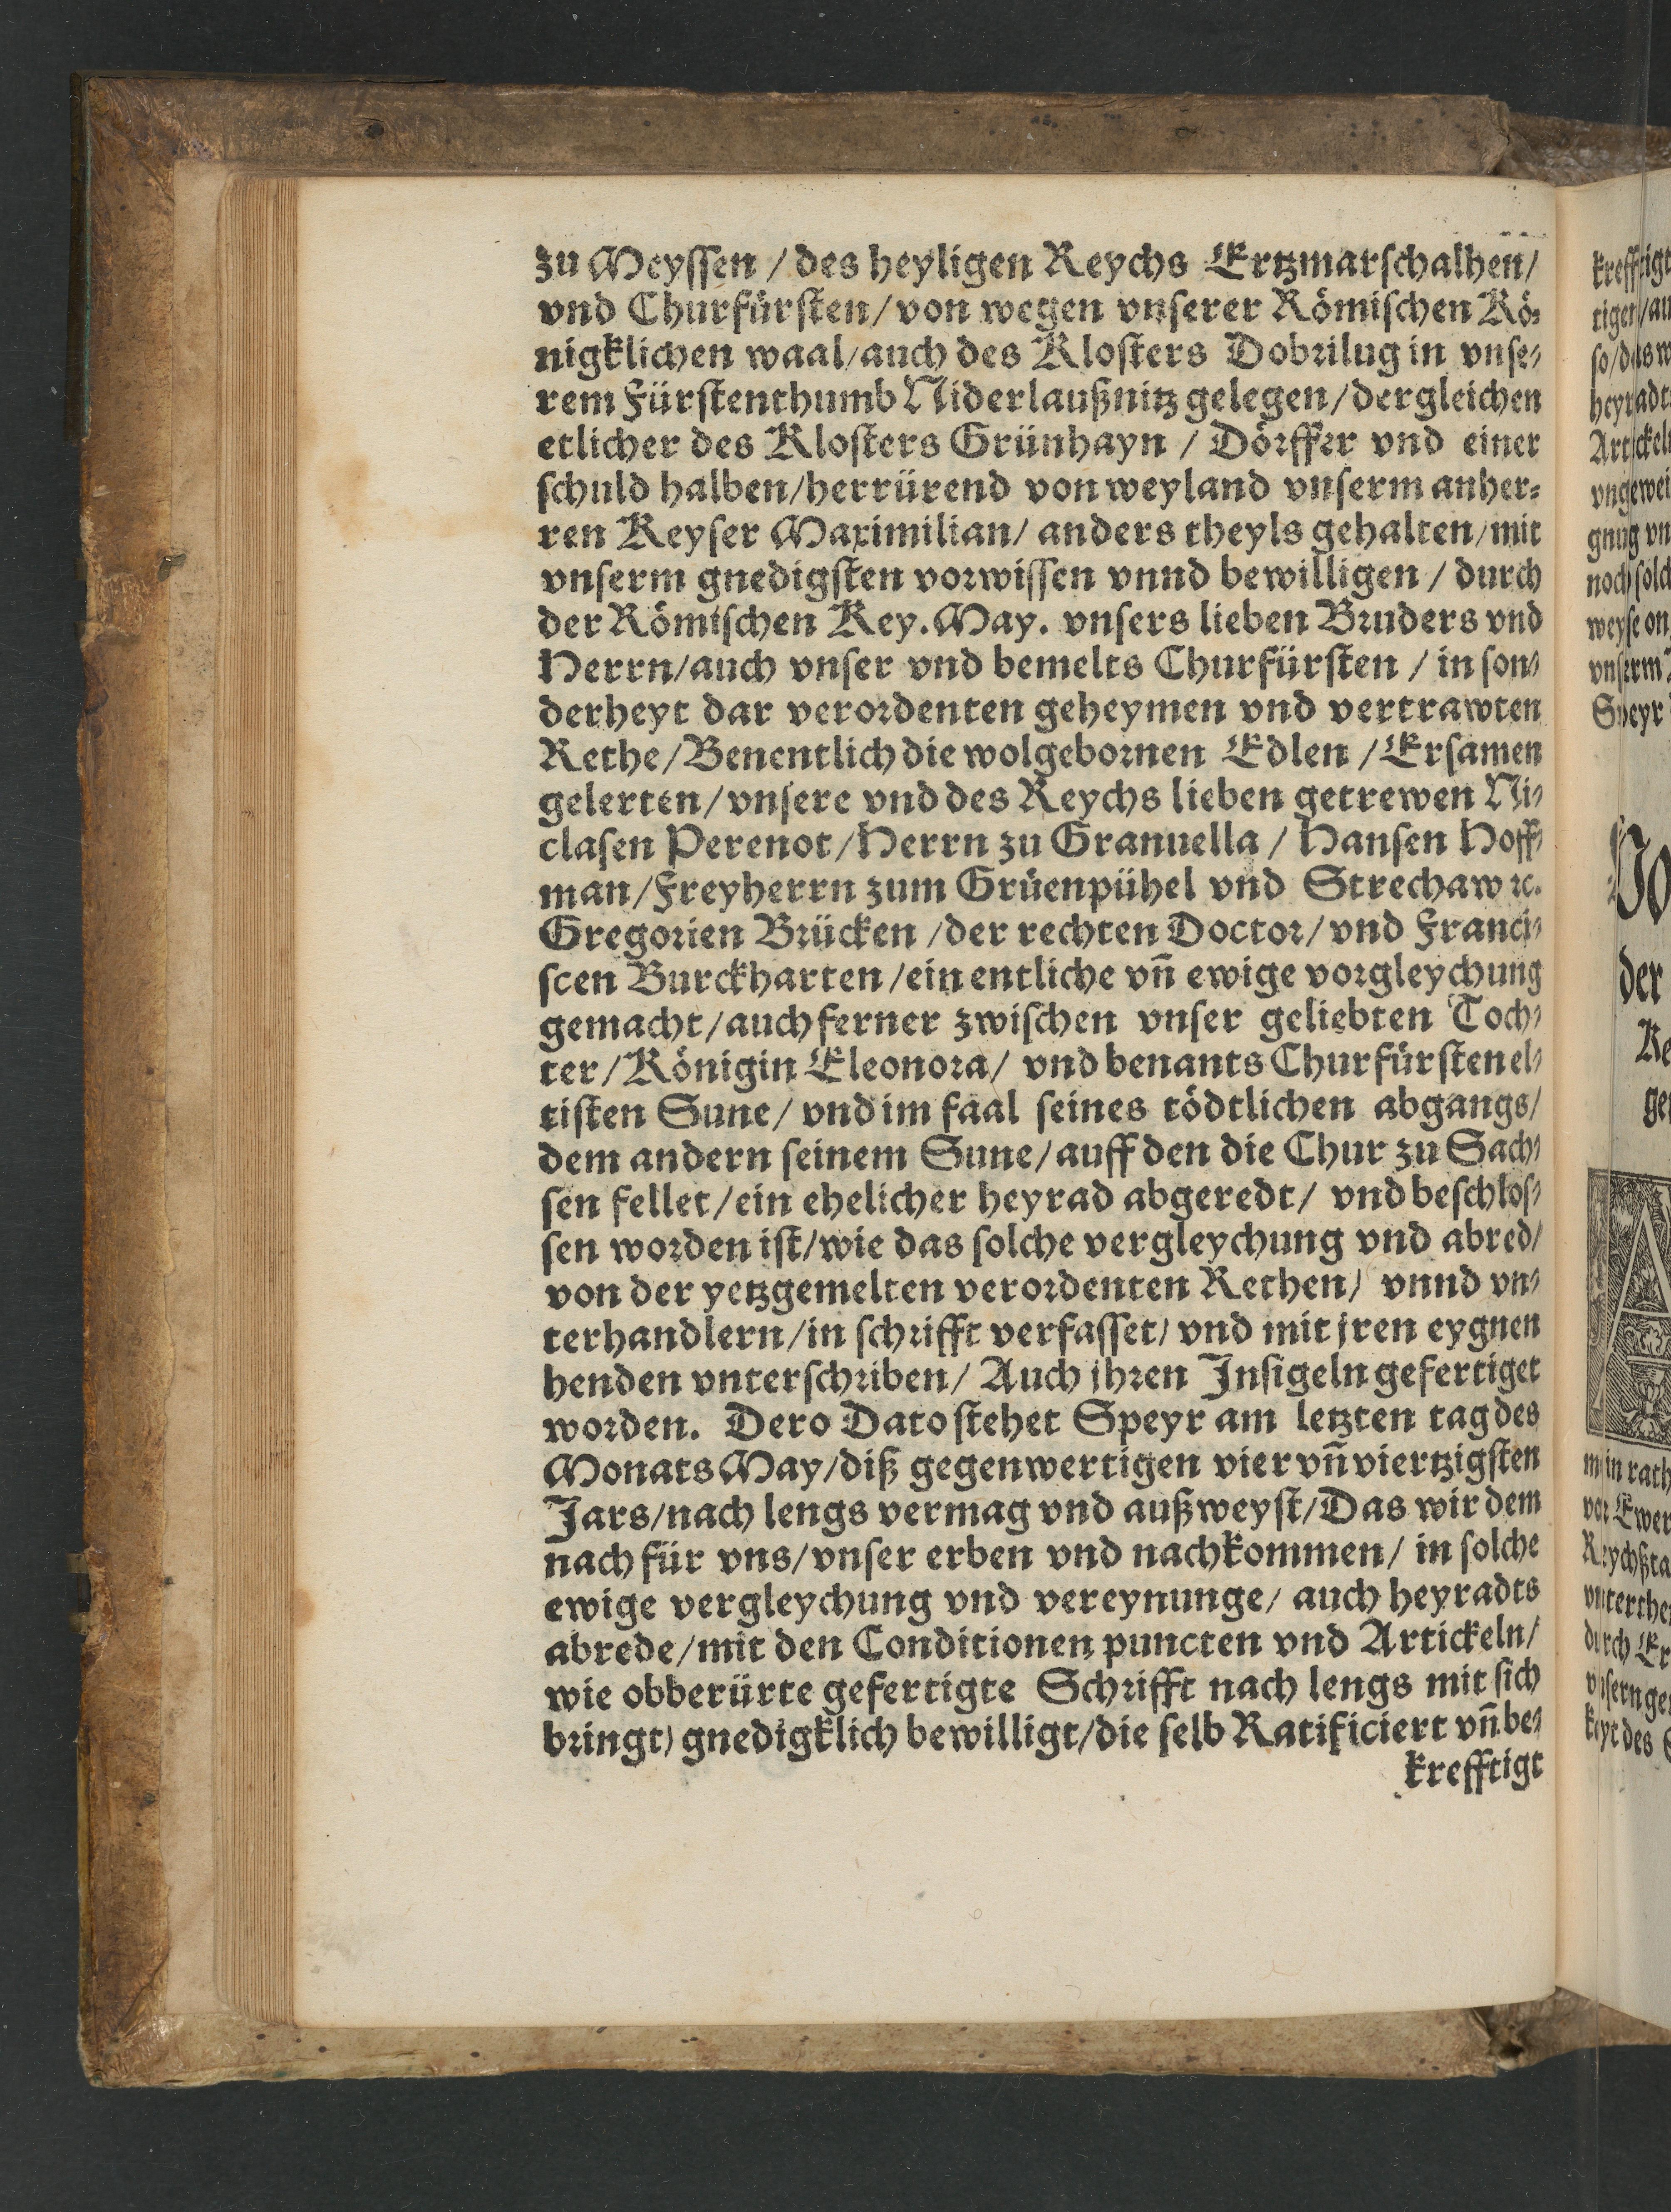 zu Meyssen / des heyligen Reychs Ertzmarschalhen/
vnd Churfürsten/von wegen vnserer Römischen Kö⸗
nigklichen waal/auch des Klosters Dobrilug in vnse⸗
rem Fürstenthumb Niderlaußnitz gelegen/dergleichen
etlicher des Klosters Grünhayn / Dörffer vnd einer
schuld halben/herrürend von weyland vnserm anher⸗
ren Keyser Maximilian/ anders theyls gehalten/mit
vnserm gnedigsten vorwissen vnnd bewilligen / durch
der Römischen Key. May. vnsers lieben Bruders vnd
Herrn/auch vnser vnd bemelts Churfürsten / in son⸗
derheyt dar verordenten geheymen vnd vertrawten
Rethe/Benentlich die wolgebornen Edlen /Ersamen
gelerten/vnsere vnd des Reychs lieben getrewen Ni⸗
clasen Perenot/Herrn zu Granuella / Hansen Hoff⸗
man/Freyherrn zum Grüenpühel vnd Strechaw ꝛc.
Gregorien Brücken /der rechten Doctor/vnd Franci⸗
scen Burckharten/ein entliche vn̄ ewige vorgleychung
gemacht/auch ferner zwischen vnser geliebten Toch⸗
ter/Königin Eleonora/ vnd benants Churfürsten el⸗
tisten Sune/ vnd im faal seines tödtlichen abgangs/
dem andern seinem Sune/auff den die Chur zu Sach⸗
sen fellet/ein ehelicher heyrad abgeredt/ vnd beschlos⸗
sen worden ist/wie das solche vergleychung vnd abred/
von der yetzgemelten verordenten Rethen/ vnnd vn⸗
terhandlern/in schrifft verfasset/ vnd mit jren eygnen
henden vnterschriben/ Auch jhren Insigeln gefertiget
worden. Dero Dato stehet Speyr am letzten tag des
Monats May/diß gegenwertigen vier vn̄ viertzigsten
Jars/nach lengs vermag vnd außweyst/Das wir dem
nach für vns/vnser erben vnd nachkommen/ in solche
ewige vergleychung vnd vereynunge/ auch heyradts
abrede/mit den Conditionen puncten vnd Artickeln/
wie obberürte gefertigte Schrifft nach lengs mit sich
bringt) gnedigklich bewilligt/die selb Ratificiert vn̄ be⸗
krefftigt